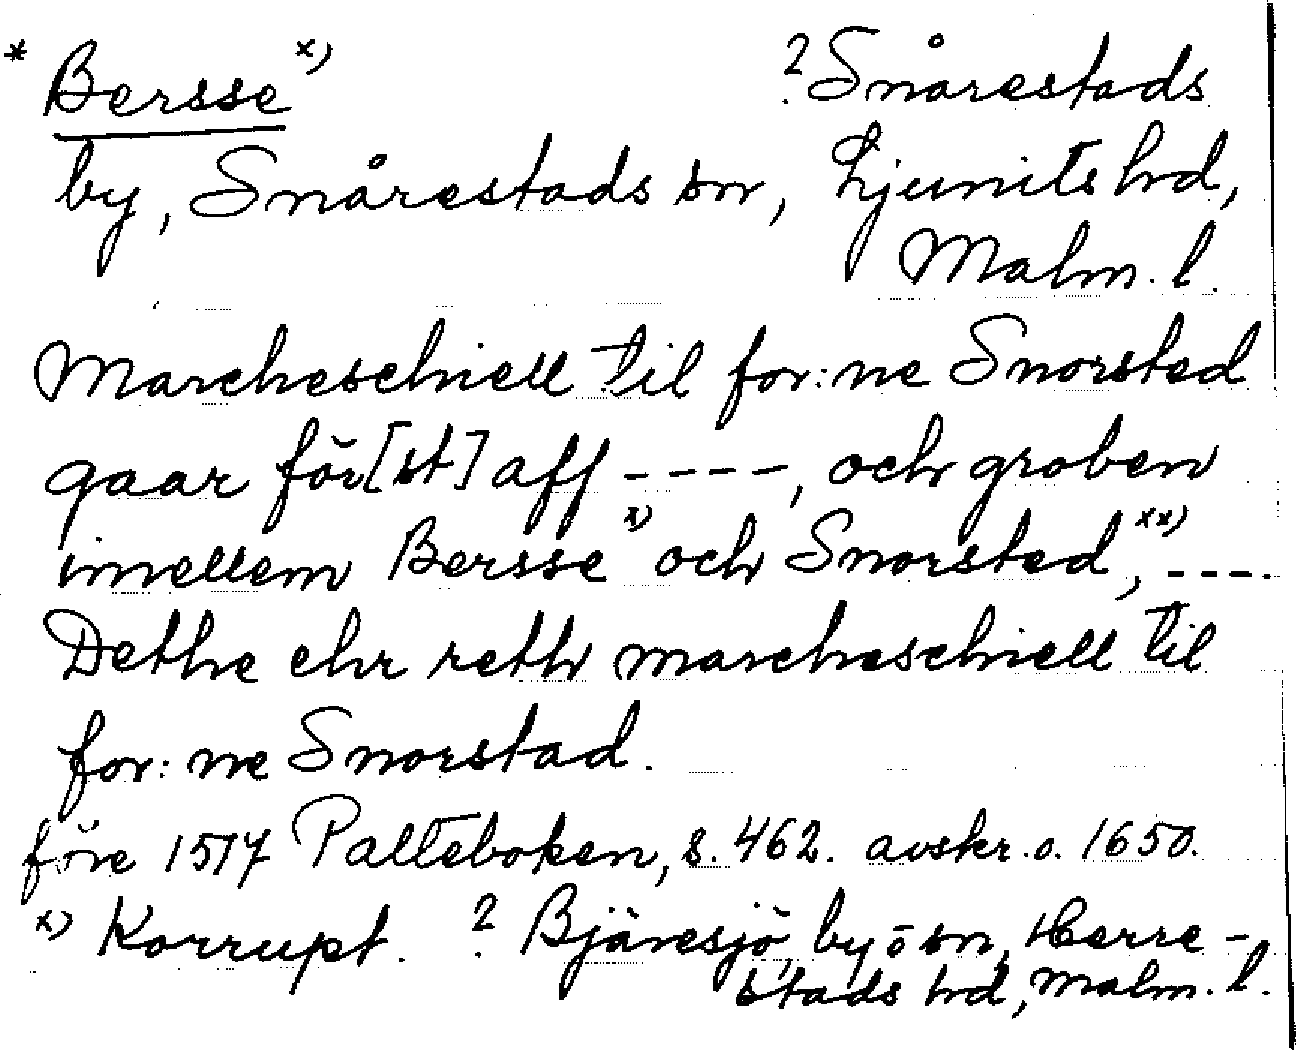 * Bersse x) ? Snårestads
by, Snårestads sn, Ljunits hd,
Malm. l.
Marcheschiell til for:ne Snorsted
gaar för[st] aff ----, och groben
imellem Bersse x) och Snorsted, xx) ----.
Dethe ehr reth marcheschiell til
for:ne Snorstad.
före 1517 Palteboken, s. 462. avskr. o. 1650.
x) Korrupt. ? Bjäresjö, by o sn, Herre-
stads hd, Malm. l.